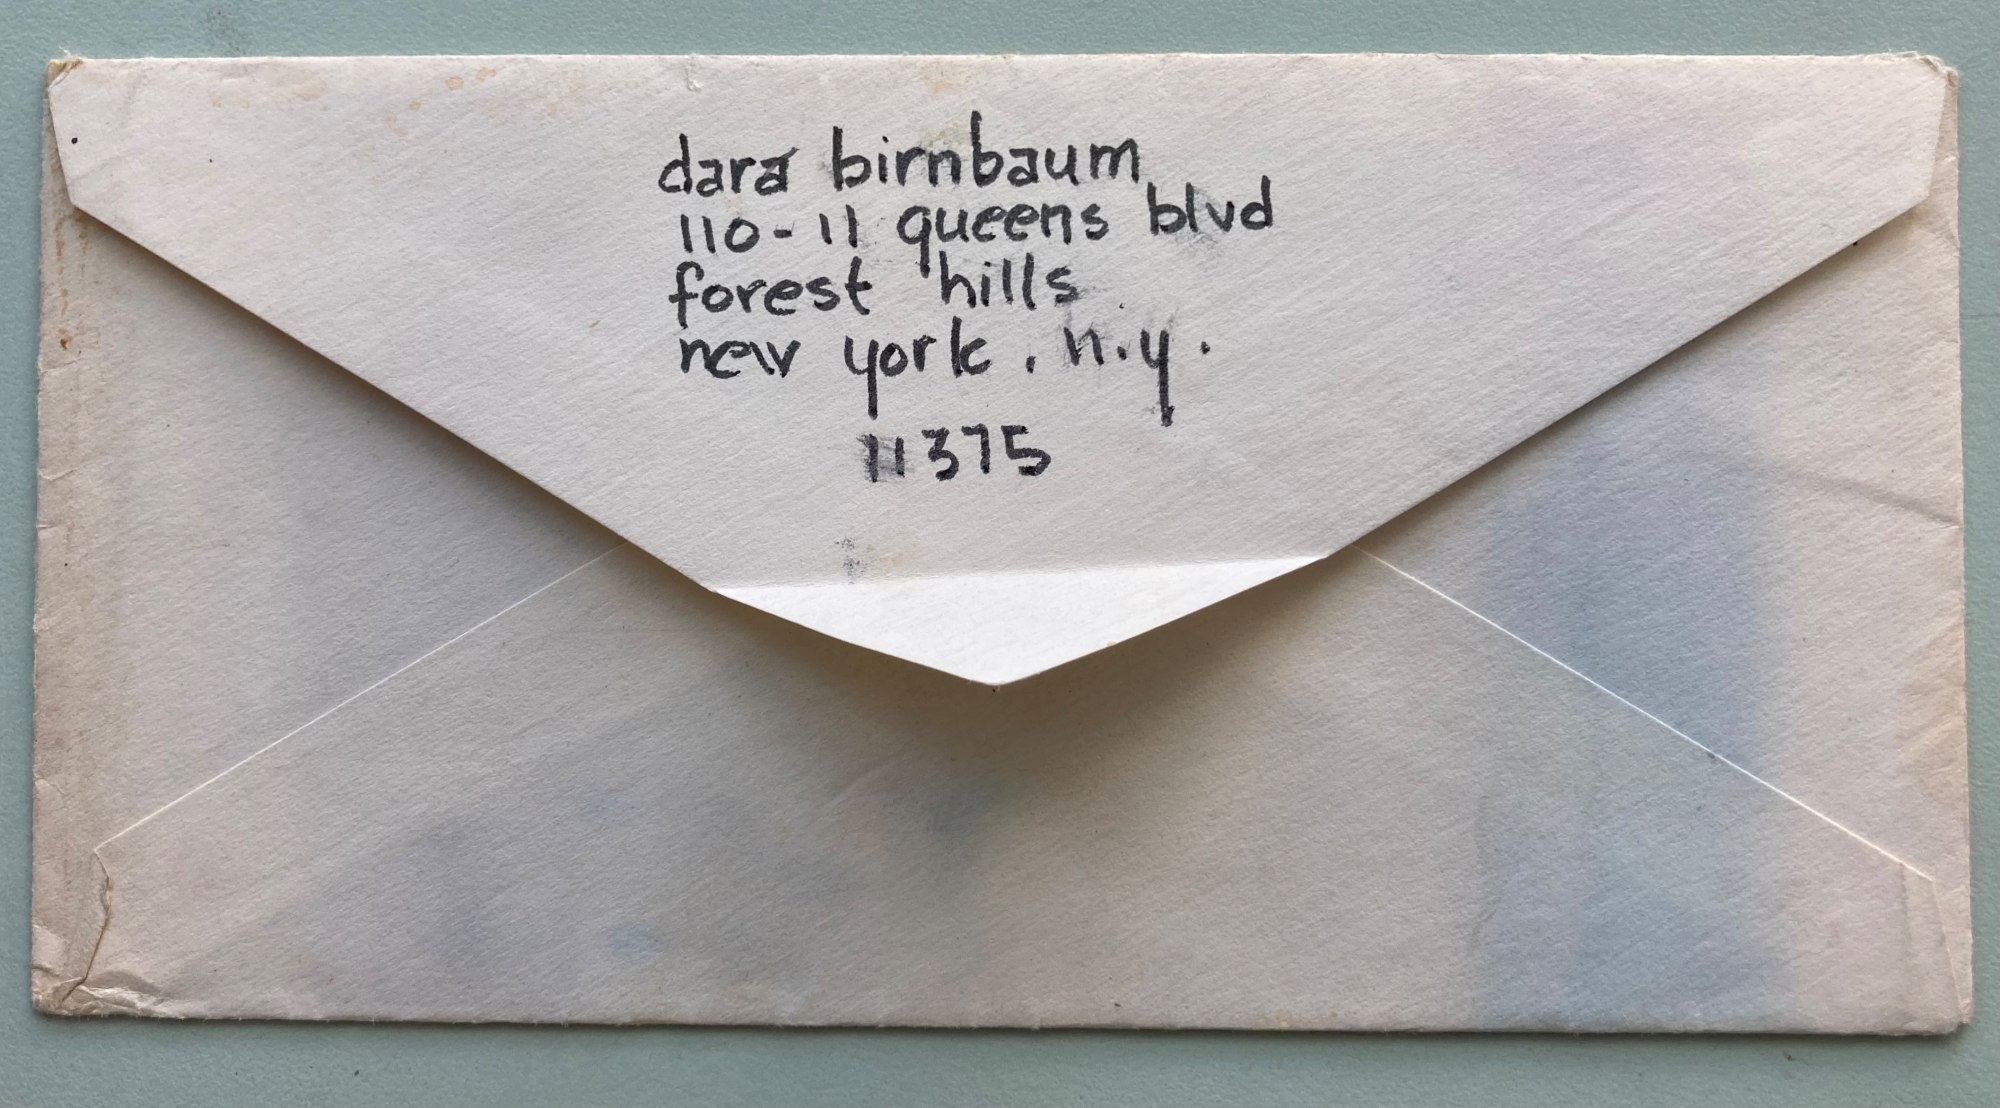 dara birnbaum
110-11 queens blvd
forest hills
new york, n.y.
11375